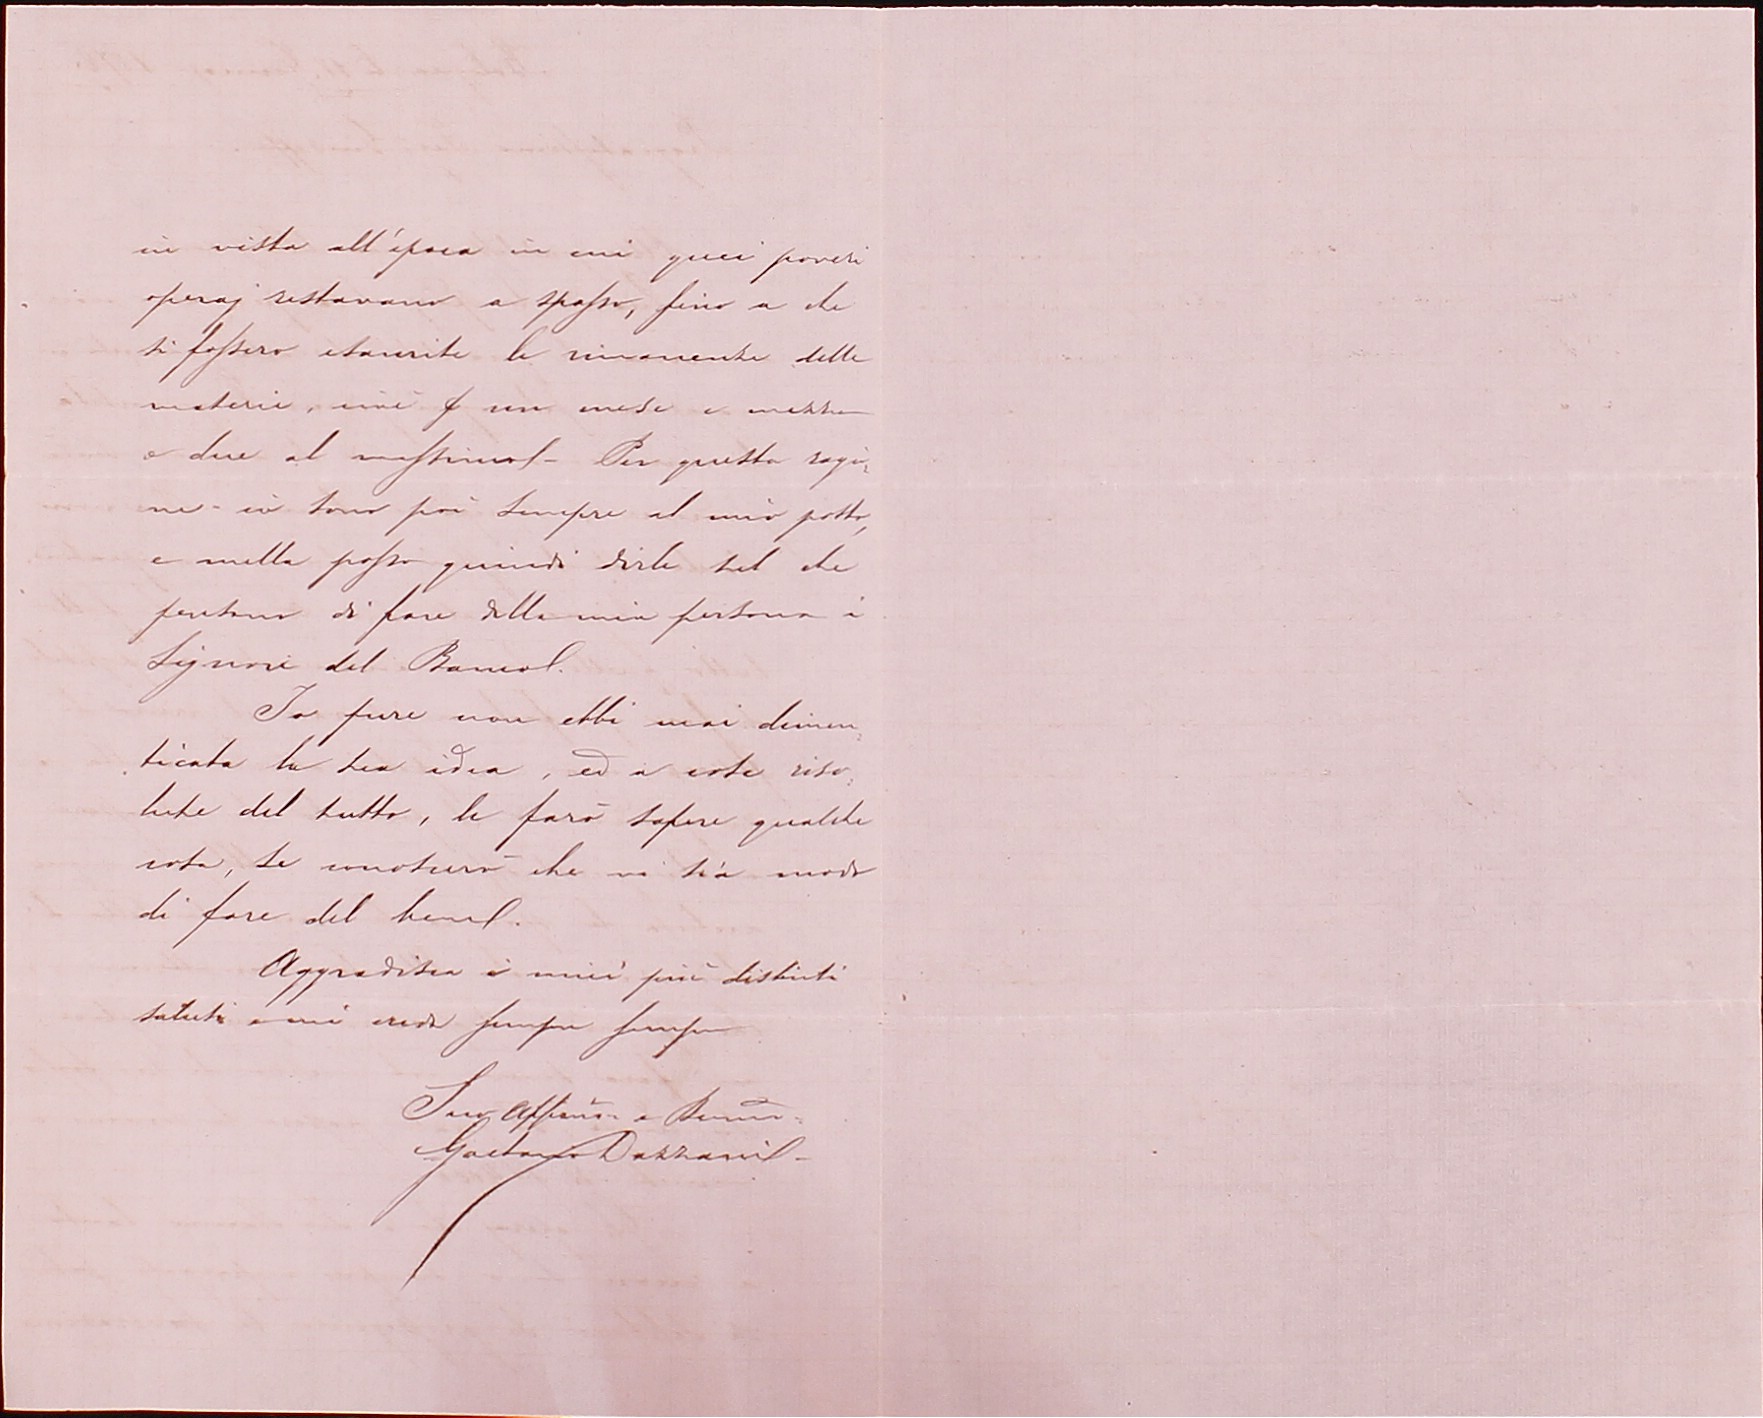 in vista all'epoca in cui quei poveri
operaj restavano a spasso, fino a che
si fossero esaurite le rimanente delle
materie, cioè p un mese e mezzo
o due al massimo - Per questa ragio,
ne - io sono poi sempre al mio posto,
e nulla posso quindi dirle sul che
pensano di fare della mia persona i
Signori del Banco.
Io pure non ebbi mai dimen,
ticata la sua idea, ed a cose riso,
lute del tutto, le farò sapere qualche
cosa, se conoscerò che vi sia modo
di fare del bene.
Aggradisca i miei più distinti
saluti e mi creda sempre sempre
Suo Affmo e
Gaetano Dazzani -